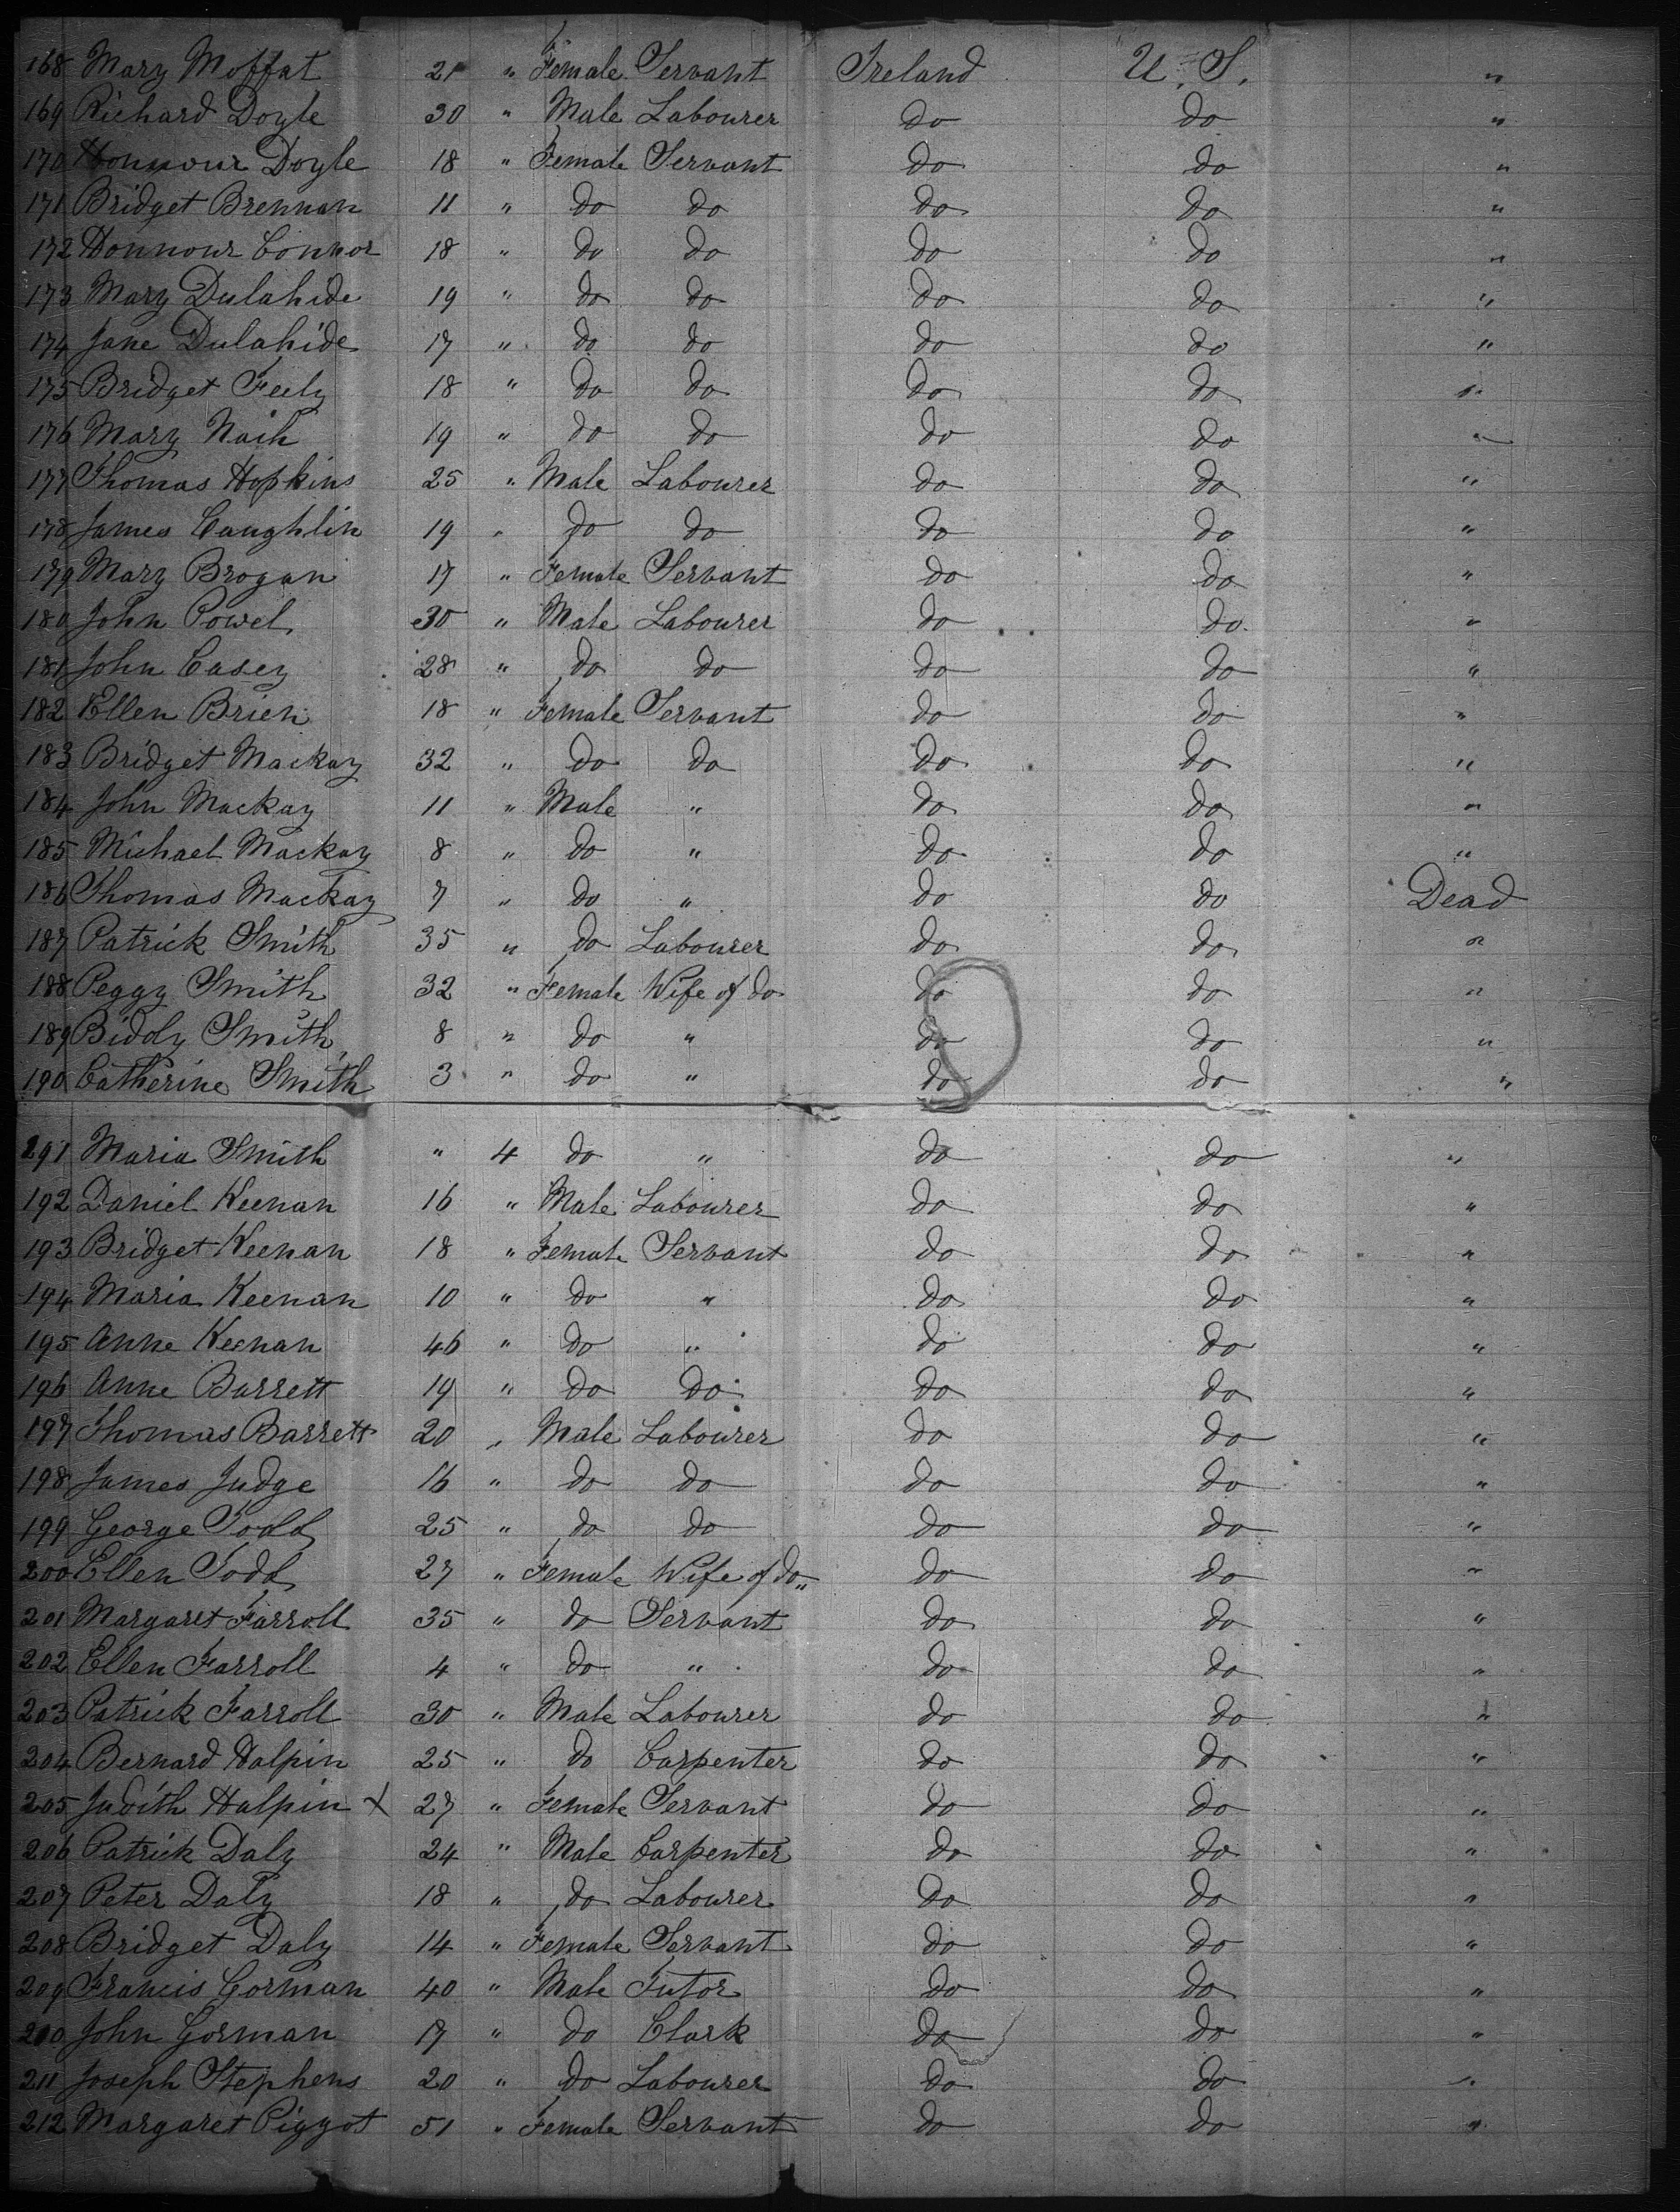 168 Mary Moffat 21 " Female Servant Ireland U. S. "
169 Richard Doyle 30 " Male Labourer do do "
170 Honnour Doyle 18 " Female Servant do do "
171 Bridget Brennan 11 " do do do do "
172 Honnour Connor 18 " do do do do "
173 Mary Dulahide 19 " do do do do "
174 Jane Dulahide 17 " do do do do "
175 Bridget Feely 18 " do do do do "
176 Mary Naih 19 " do do do do "
177 Thomas Hopkins 25 " Male Labourer do do "
178 James Caughlin 19 " do do do do "
179 Mary Brogan 17 " Female Servant do do "
180 John Powel 30 " Male Labourer do do "
181 John Casey 28 " do do do do "
182 Ellen Brien 18 " Female Servant do do "
183 Bridget Mackay 32 " do do do do "
184 John Mackay 11 " Male " do do "
185 Michael Mackay 8 " do " do do "
186 Thomas Mackay 7 " do " do do Dead
187 Patrick Smith 35 " do Labourer do do "
188 Peggy Smith 32 " Female Wife of do do do "
189 Biddy Smith 8 " do " do do "
190 Catherine Smith 3 " do " do do "
191 Maria Smith " 4 do " do do "
192 Daniel Keenan 16 " Male Labourer do do "
193 Bridget Keenan 18 " Female Servant do do "
194 Maria Keenan 10 " do " do do "
195 Anne Keenan 46 " do " do do "
196 Anne Barrett 19 " do do do do "
197 Thomas Barrett 20 " Male Labourer do do "
198 James Judge 16 " do do do do "
199 George Todd 25 " do do do do "
200 Ellen Todd 27 " Female Wife of do " do do "
201 Margaret Farroll 35 " do Servant do do "
202 Ellen Farroll 4 " do " do do "
203 Patrick Farroll 30 " Male Labourer do do "
204 Bernard Halpin 25 " do Carpenter do do "
205 Judith Halpin X 27 " Female Servant do do "
206 Patrick Daly 24 " Male Carpenter do do "
207 Peter Daly 18 " do Labourer do do "
208 Bridget Daly 14 " Female Servant do do "
209 Francis Gorman 40 " Male Tutor do do "
210 John Gorman 17 " do Clark do do "
211 Joseph Stephens 20 " do Labourer do do "
212 Margaret Piggot 51 " Female Servant do do "